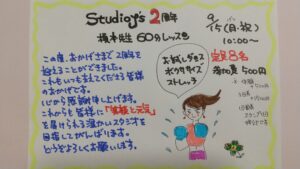 Studioj's 2周年
橋本先生 60分レッスン
9/15(月・祝)
10:00〜
この度、おかげさまで2周年を
迎えることができました。
これもいつも支えてくださる皆様
のおかげです。
心から感謝申し上げます。
これからも皆様に"笑顔と元気"
を届けられる温かいスタジオを
目指してがんばります。
どうぞよろしくお願いします。
お試しダンス
ボクササイズ
ストレッチ
定員8名
参加費 500円